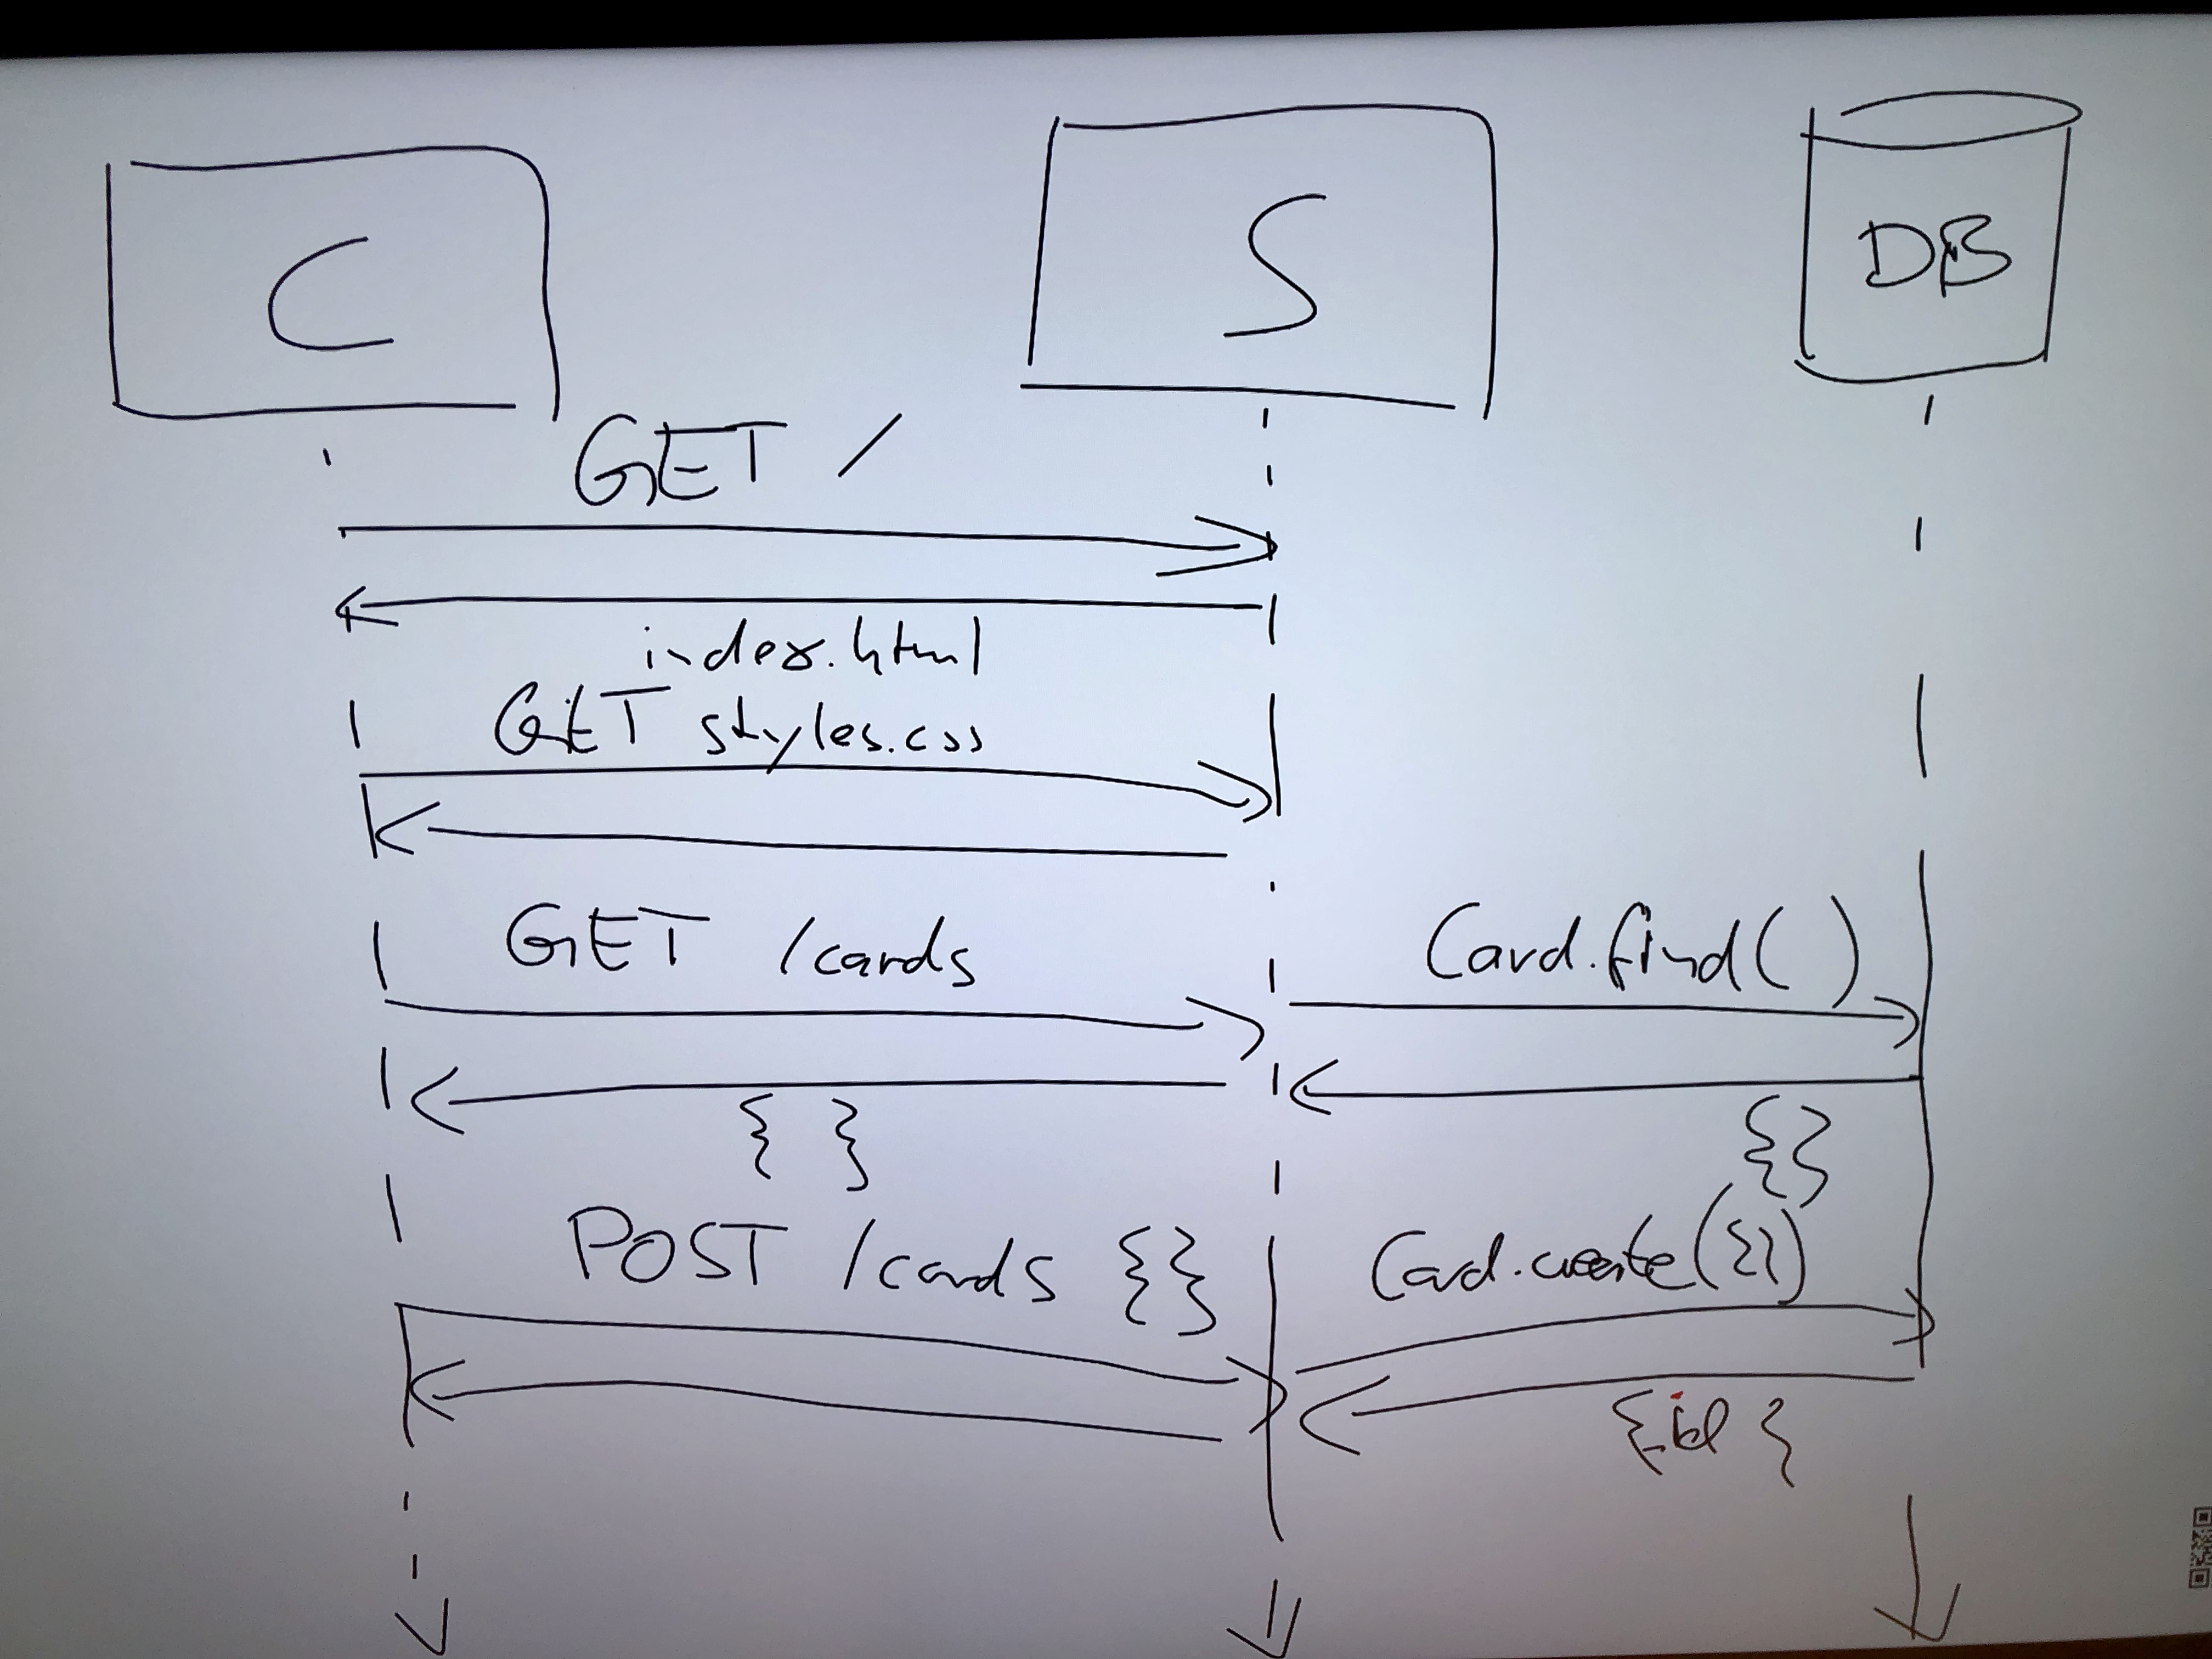 C
S
DB
GET /
index.html
GET styles.css
GET /cards
Card.find()
{ }
{}
POST /cards {}
Card.create({})
{id}